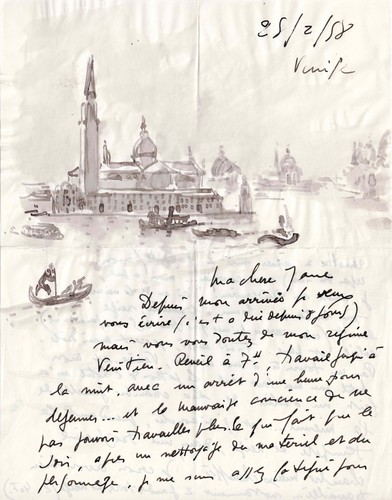 25/2/58
Venise
Ma chère Jane
Depuis mon arrivée je veux
vous écrire (c'est à dire depuis 8 jours)
mais vous vous doutez de mon régime
Vénitien. Réveil à 7h, travail jusqu'à
la nuit, avec un arrêt d'une heure pour
déjeuner... et la mauvaise conscience de ne
pas pouvoir travailler plus. Ce qui fait que le
soir, après un nettoyage du matériel et du
personnage, je me sens assez fatigué pour